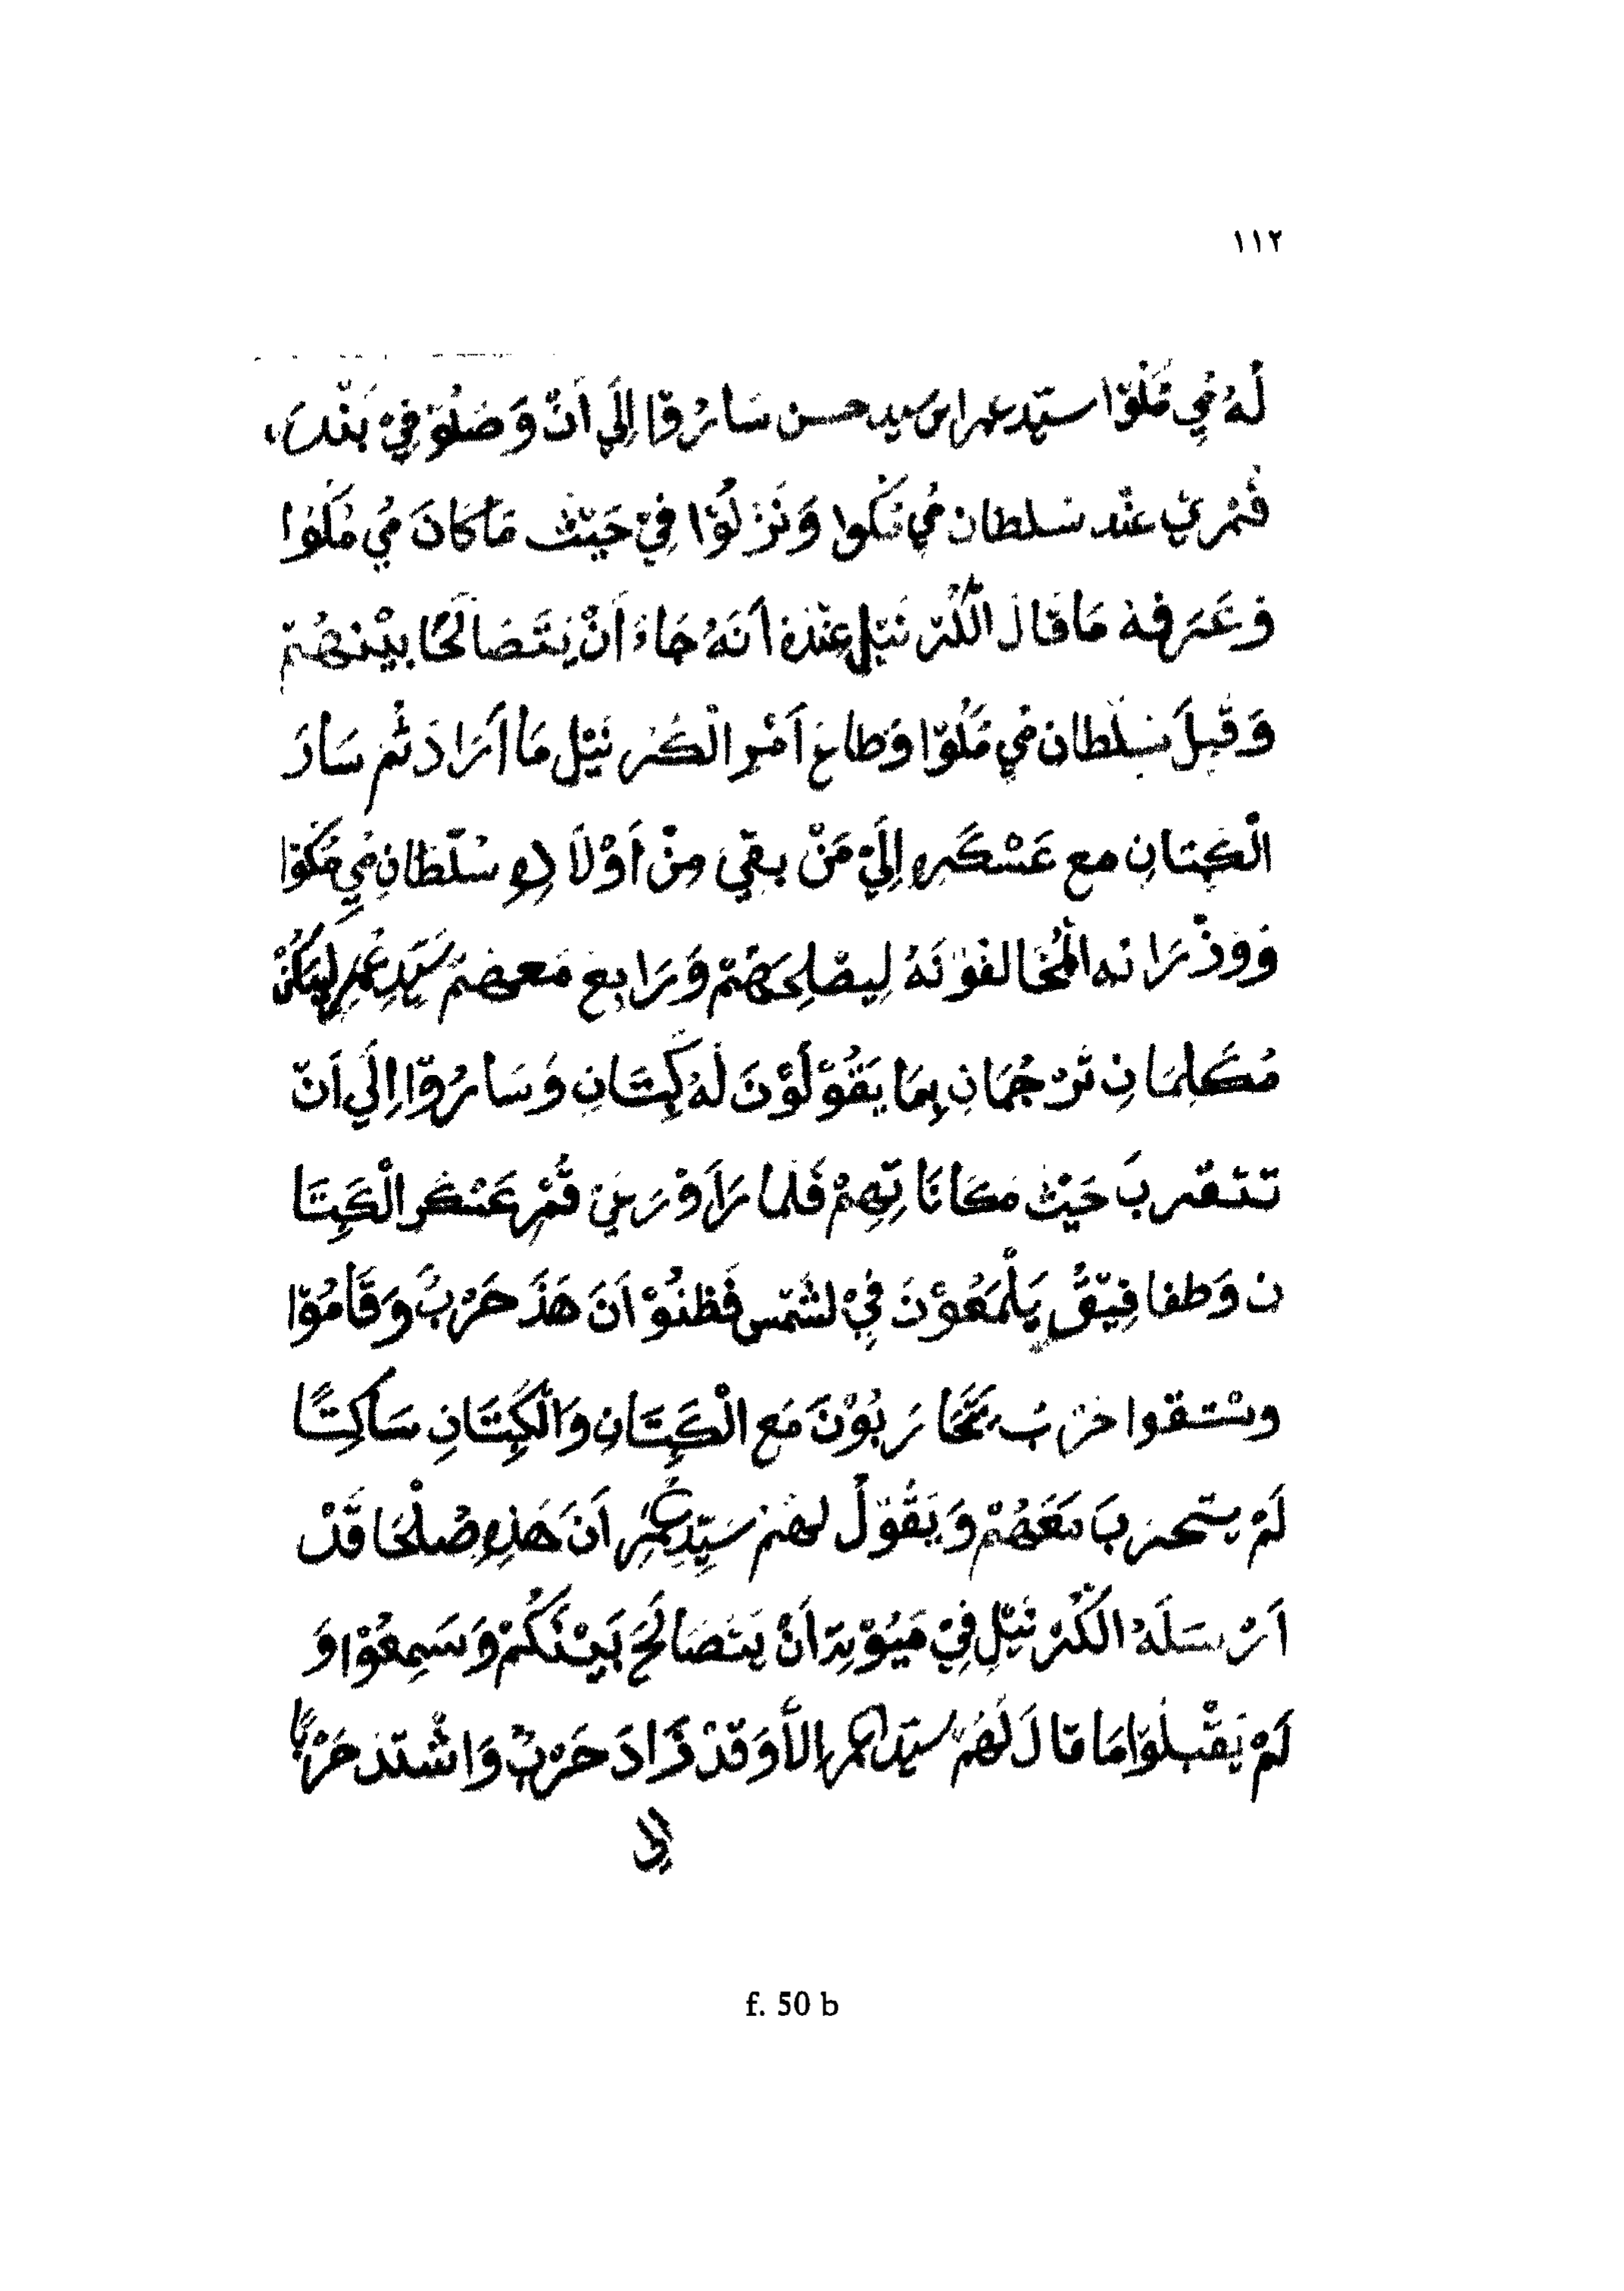 ١١٢
لَهُ مُي مَلُوْا سيّد عمر ابن سيد حسن سَارُوا إِلَي اَنْ وَصَلُوْ فِيْ بَنْدَرَ،
قُمْرِيْ عِنْد سُلطان مُي مَكوا وَنَزَلُوْا فِيْ حَيْث مَا كَانَ مُي مَلُوْا
وَعَرَفِهْ مَا قَالَ الْكُرْنَيْلِ عِنْدَهُ اَنَهُ جَاءَ اَنْ يَتَصَالَحَا بَيْنهُمْ
وَقَبِلَ سُلْطان مُي مَلُوْا وَطاعَ اَمْرِ الْكُرْنَيْل مَا اَرَادَ ثُم سَارَ
الْكَبِتَانِ مع عَسْكَرِهِ إِلَيْ مَنْ بقي مِنْ اَوْلَادِهِ سُلْطَانِ مُي مَكوْا
وَوَزْرَانه الْمُخَالفوْنَهُ لِيصْلِحَهُمْ وَرَابِعْ مَعهمْ سَيِّدِ عُمَرِ لِيَكُنْ
مُكَلِمَانِ تُرْجُمَانِ بِمَا يَقُوْلُوْنَ لَهُ كَبِتَانِ وَسَارُوْا اِلَي اَنْ
تتقربَ حَيْثُ مَكَانَاتِهِمْ فَلما رَاَوْ رَيَيْ قُمْرِ عَسْكَرِ الْكَبِتَا
ن وَطفافِيْقُ يَلْمَعُوْنَ فِيْ لشَمْس فَظنُوْ اَنَ هَذَ حَرْبُ وَقَامُوْا
وستقوا حَرْبُ يَتَحَارَبُوْنَ مَع الْكَبِتَانِ وَالْكَبِتَانِ سَاكِتًا
لَمْ يتحرَبَ مَعَهُمْ وَيَقُوْلُ لهُمْ سَيِّدِ عُمَرِ اَنَ هَذِهِ صُلْحَا قَدْ
اَرْسَلَهُ الْكُرْنَيْلِ فِيْ مَيُوْتِ اَنْ يَتَصَالَحَ بَيْنَكُمْ وَسَمِعُوْا وَ
لَمْ يَقْبلُوْا مَا قَالَ لَهُمْ سيّد عمر اِلاَّ وَقَدْ زَادَ حَرْبُ وَاشْتَد حَرْبًا
الي
f. 50 b